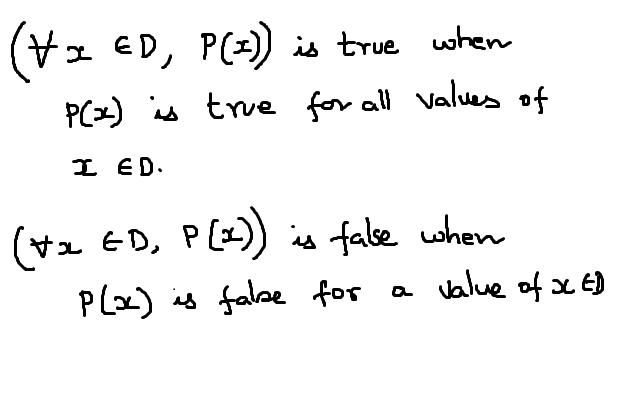 (∀x ∈ D, P(x)) is true when
P(x) is true for all values of
x ∈ D.
(∀x ∈ D, P(x)) is false when
P(x) is false for a value of x ∈ D